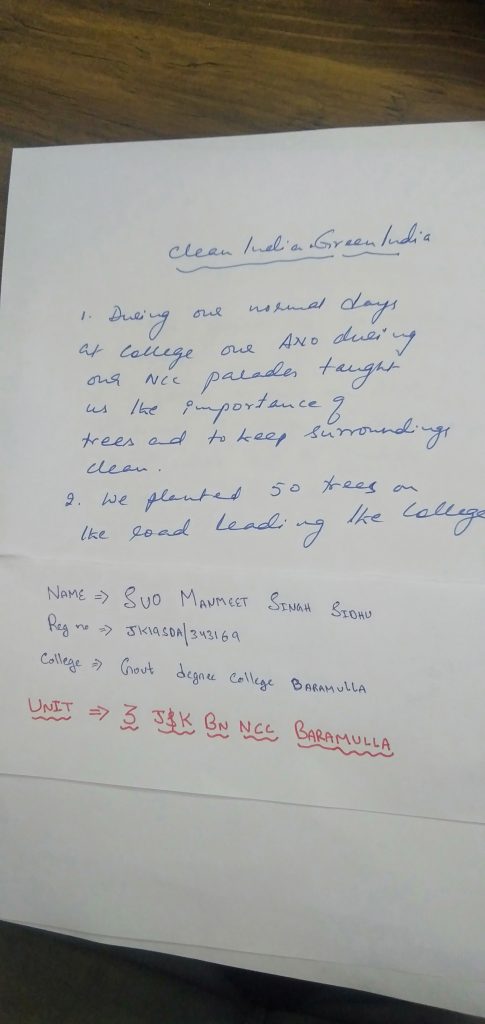 Clean India Green India
1. During our normal days
at College our ANO during
our NCC parades taught
us the importance of
trees and to keep surroundings
clean.
2. We planted 50 trees on
the road leading the College
NAME ⇒ SUO MANMEET SINGH SIDHU
Reg no ⇒ JK19SDA/343169
College ⇒ Govt degree College BARAMULLA
UNIT ⇒ 3 J&K BN NCC BARAMULLA